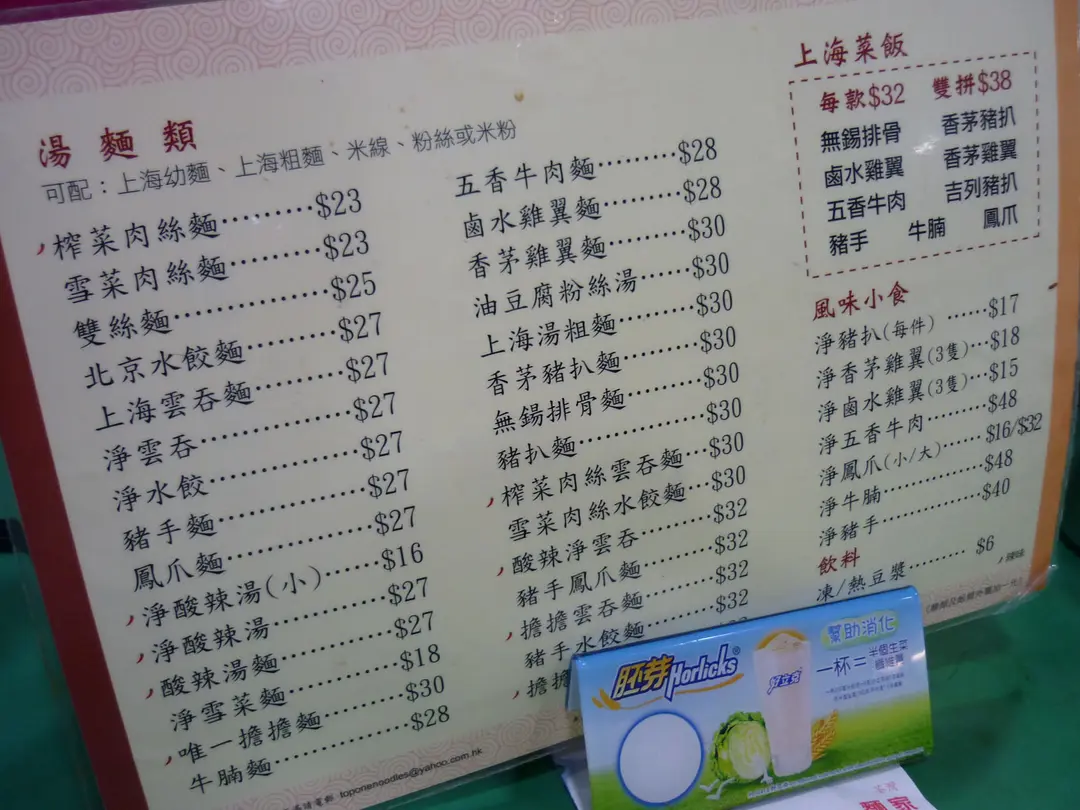 湯麵類
可配：上海幼麵、上海粗麵、米線、粉絲或米粉
榨菜肉絲麵………$23
雪菜肉絲麵………$23
雙絲麵………$25
北京水餃麵………$27
上海雲吞麵………$27
淨雲吞………$27
淨水餃………$27
豬手麵………$27
鳳爪麵………$27
淨酸辣湯(小)……$16
淨酸辣湯………$27
酸辣湯麵………$27
淨雪菜麵………$18
唯一擔擔麵………$30
牛腩麵………$28
五香牛肉麵………$28
鹵水雞翼麵………$28
香茅雞翼麵………$30
油豆腐粉絲湯……$30
上海湯粗麵………$30
香茅豬扒麵………$30
無錫排骨麵………$30
豬扒麵………$30
榨菜肉絲雲吞麵…$30
雪菜肉絲水餃麵…$30
酸辣淨雲吞………$32
豬手鳳爪麵………$32
擔擔雲吞麵………$32
豬手水餃麵………$32
擔擔
上海菜飯
每款$32 雙拼$38
無錫排骨 香茅豬扒
鹵水雞翼 香茅雞翼
五香牛肉 吉列豬扒
豬手 牛腩 鳳爪
風味小食
淨豬扒(每件)……$17
淨香茅雞翼(3隻)…$18
淨鹵水雞翼(3隻)…$15
淨五香牛肉………$48
淨鳳爪(小/大)……$16/$32
淨牛腩………$48
淨豬手………$40
飲料
凍/熱豆漿………$6
辣味
toponenoodles@yahoo.com.hk
胚芽Horlicks®
好立克
幫助消化
一杯=半個生菜纖維量